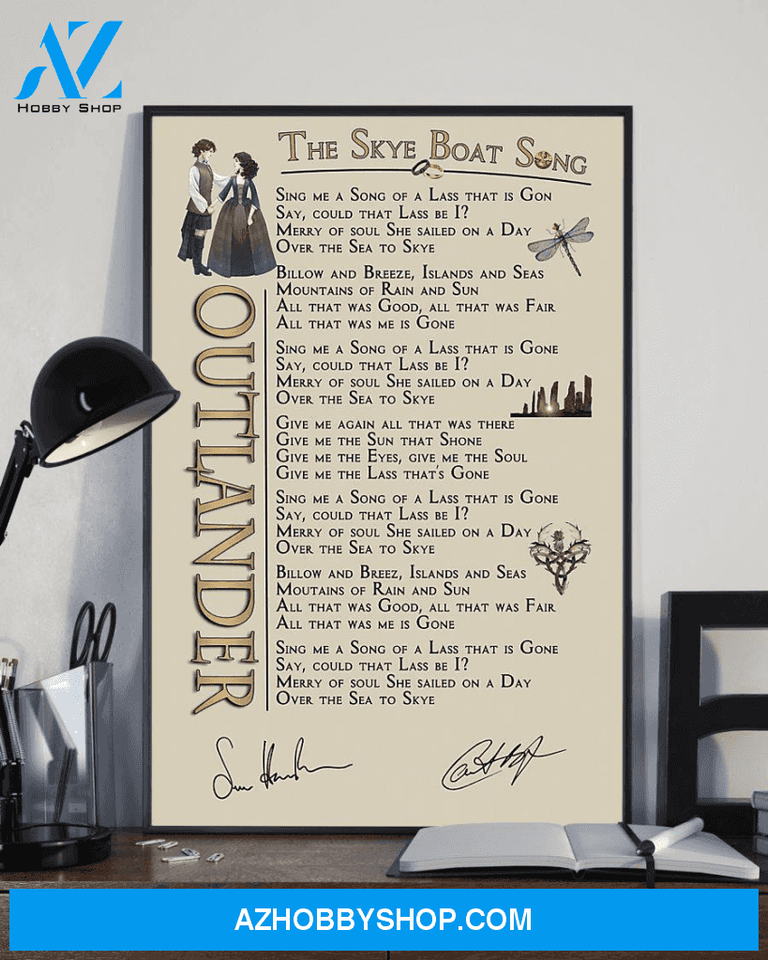 AZ
HOBBY SHOP
THE SKYE BOAT SONG
SING ME A SONG OF A LASS THAT IS GON
SAY, COULD THAT LASS BE I?
MERRY OF SOUL SHE SAILED ON A DAY
OVER THE SEA TO SKYE
BILLOW AND BREEZE, ISLANDS AND SEAS
MOUNTAINS OF RAIN AND SUN
ALL THAT WAS GOOD, ALL THAT WAS FAIR
ALL THAT WAS ME IS GONE
SING ME A SONG OF A LASS THAT IS GONE
SAY, COULD THAT LASS BE I?
MERRY OF SOUL SHE SAILED ON A DAY
OVER THE SEA TO SKYE
GIVE ME AGAIN ALL THAT WAS THERE
GIVE ME THE SUN THAT SHONE
GIVE ME THE EYES, GIVE ME THE SOUL
GIVE ME THE LASS THAT'S GONE
SING ME A SONG OF A LASS THAT IS GONE
SAY, COULD THAT LASS BE I?
MERRY OF SOUL SHE SAILED ON A DAY
OVER THE SEA TO SKYE
BILLOW AND BREEZ, ISLANDS AND SEAS
MOUTAINS OF RAIN AND SUN
ALL THAT WAS GOOD, ALL THAT WAS FAIR
ALL THAT WAS ME IS GONE
SING ME A SONG OF A LASS THAT IS GONE
SAY, COULD THAT LASS BE I?
MERRY OF SOUL SHE SAILED ON A DAY
OVER THE SEA TO SKYE
OUTLANDER
AZHOBBYSHOP.COM